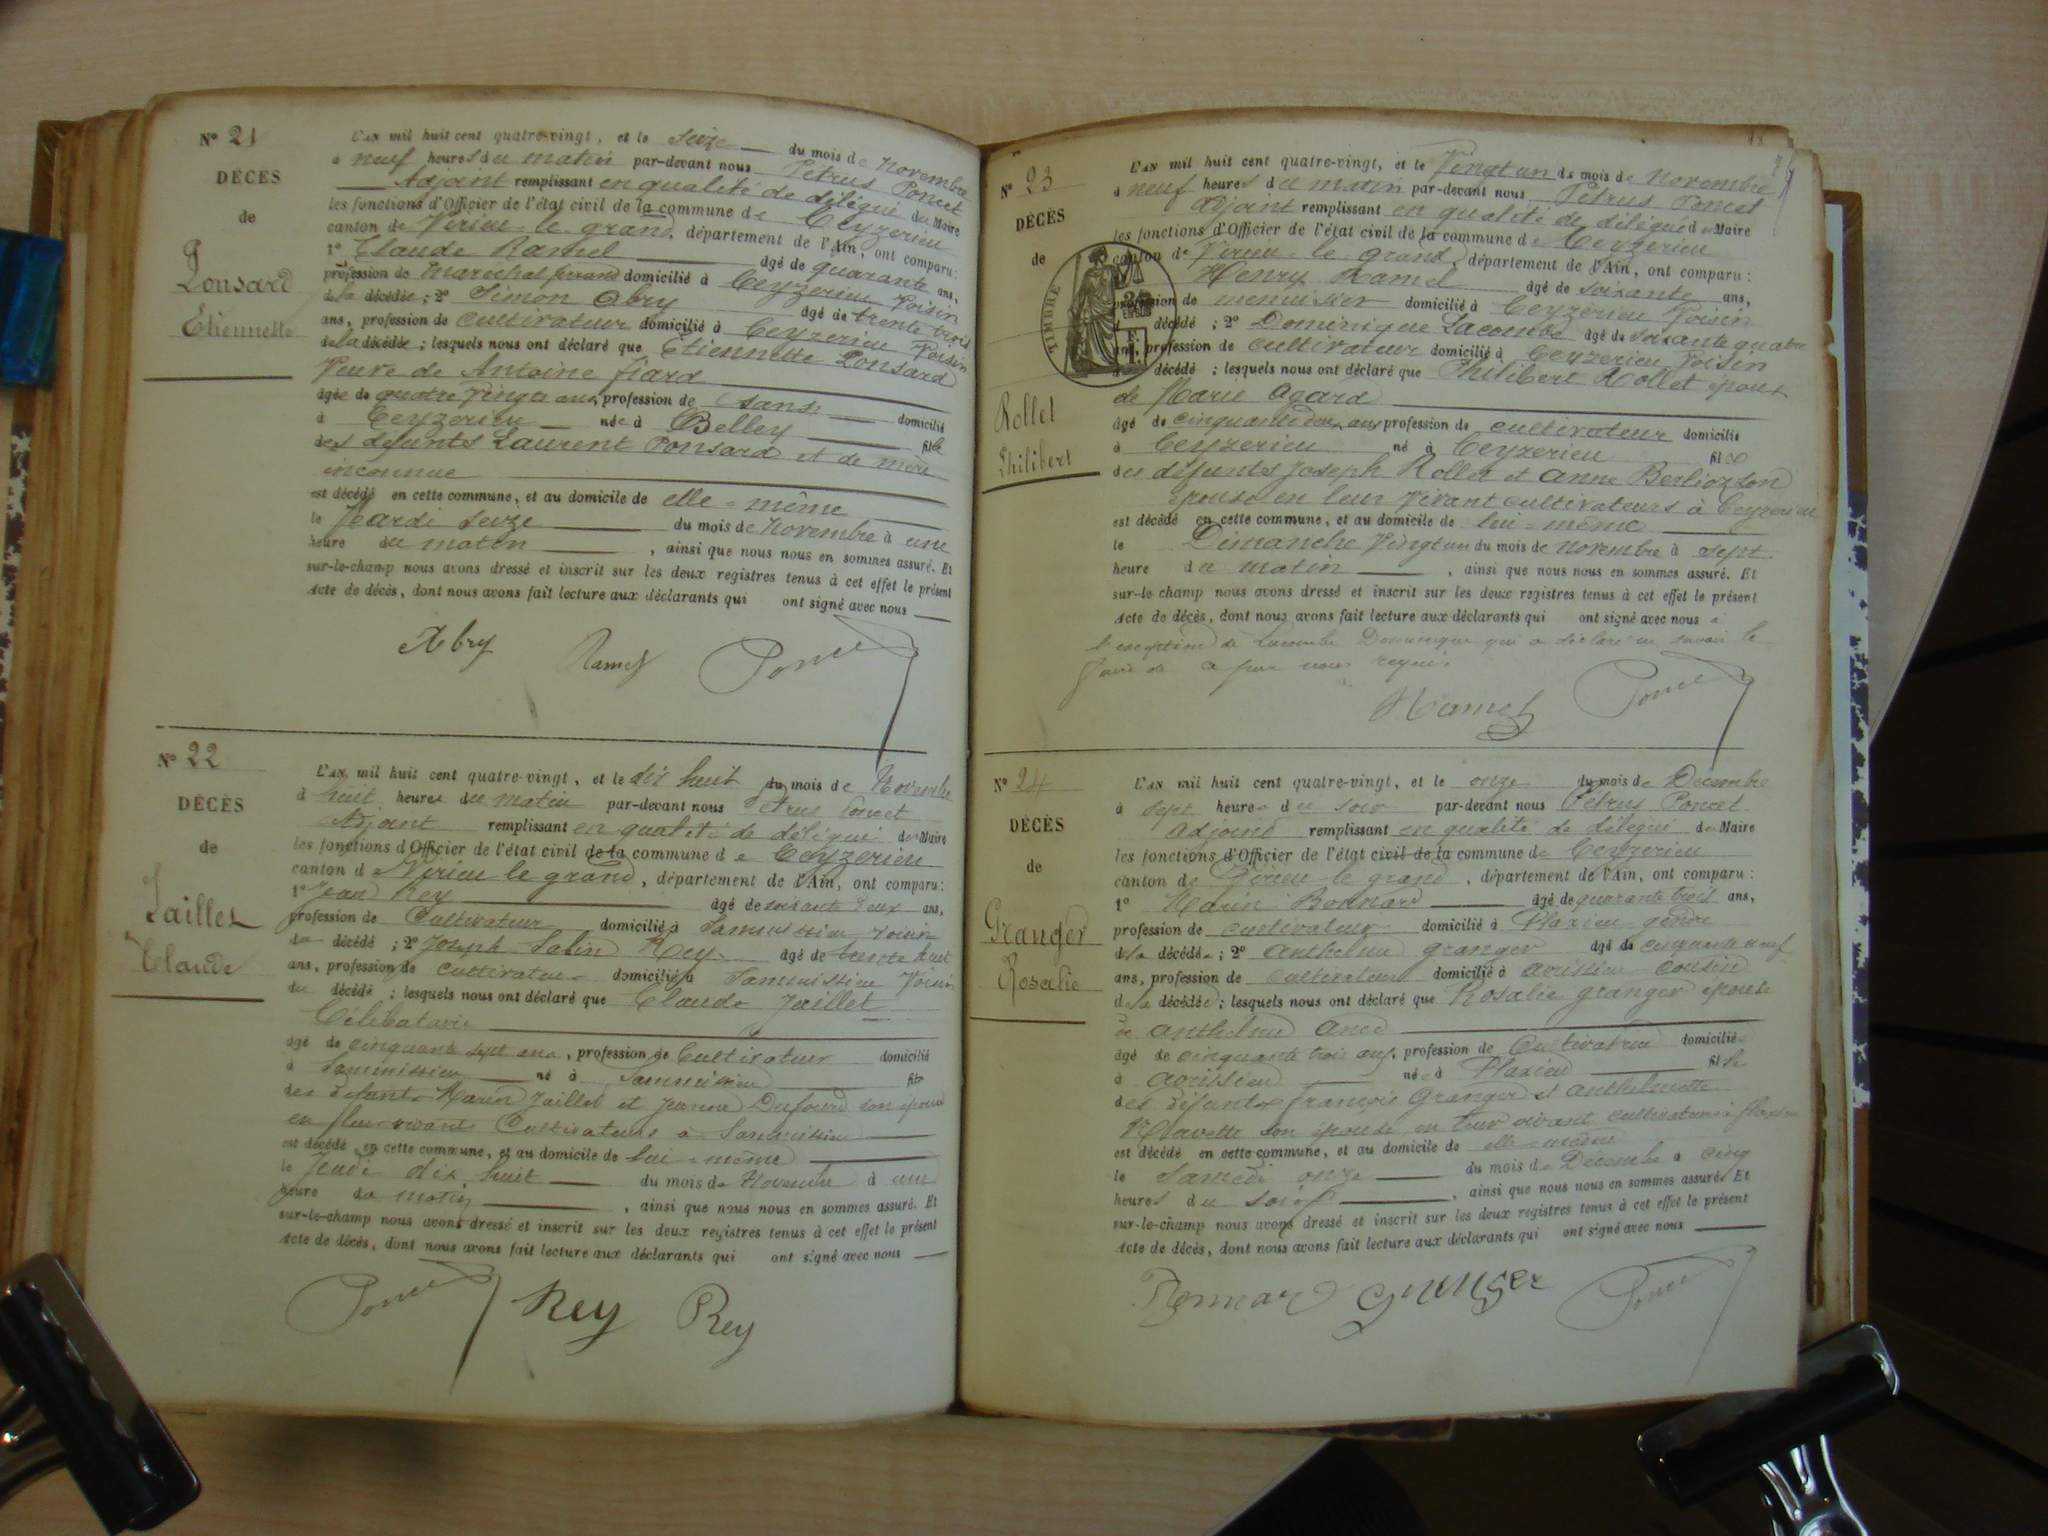 N° 21
DÉCÈS
de
Ponsard
Etiennette
L'AN mil huit cent quatre-vingt, et le seize du mois de Novembre
à neuf heures du matin par-devant nous Petrus Poncet
Adjoint remplissant en qualité de délégué du Maire
les fonctions d'Officier de l'état civil de la commune de Ceyzerieu
canton de Virieu-le-grand, département de l'Ain, ont comparu:
1° Claude Ramel âgé de quarante ans,
profession de Maréchal ferrand domicilié à Ceyzerieu Voisin
de la décédée; 2° Simon Abry âgé de trente trois
ans, profession de cultivateur domicilié à Ceyzerieu Voisin
de la décédée; lesquels nous ont déclaré que Etiennette Ponsard
Veuve de Antoine fiard
âgée de quatre vingts ans, profession de sans domicilié
à Ceyzerieu née à Belley fille
des défunts Laurent Ponsard et de mère
inconnue
est décédé en cette commune, et au domicile de elle-même
le Mardi seize du mois de Novembre à une
heure du matin, ainsi que nous nous en sommes assuré. Et
sur-le-champ nous avons dressé et inscrit sur les deux registres tenus à cet effet le présent
Acte de décès, dont nous avons fait lecture aux déclarants qui ont signé avec nous
Abry Ramel Poncet
N° 22
DÉCÈS
de
Jaillet
Claude
L'AN mil huit cent quatre-vingt, et le dix huit du mois de Novembre
à huit heures du matin par-devant nous Petrus Poncet
Adjoint remplissant en qualité de délégué du Maire
les fonctions d'Officier de l'état civil de la commune de Ceyzerieu
canton de Virieu le grand, département de l'Ain, ont comparu:
1° Jean Rey âgé de soixante deux ans,
profession de Cultivateur domicilié à Sammissieu voisin
du décédé; 2° Joseph Sabin Rey âgé de trente huit
ans, profession de cultivateur domicilié à Sammissieu Voisin
du décédé; lesquels nous ont déclaré que Claude Jaillet
Célibataire
âgé de cinquante sept ans, profession de Cultivateur domicilié
à Sammissieu né à Sammissieu fils
des défunts Marin Jaillet et Jeanne Dufourd son épouse
en leur vivant Cultivateurs à Sammissieu
est décédé en cette commune, et au domicile de lui-même
le Jeudi dix huit du mois de Novembre à une
heure du matin, ainsi que nous nous en sommes assuré. Et
sur-le-champ nous avons dressé et inscrit sur les deux registres tenus à cet effet le présent
Acte de décès, dont nous avons fait lecture aux déclarants qui ont signé avec nous
Poncet Rey Rey
N° 23
DÉCÈS
de
TIMBRE
Rollet
Philibert
L'AN mil huit cent quatre-vingt, et le Vingt un du mois de Novembre
à neuf heures du matin par-devant nous Petrus Poncet
Adjoint remplissant en qualité de délégué du Maire
les fonctions d'Officier de l'état civil de la commune de Ceyzerieu
canton de Virieu-le-grand, département de l'Ain, ont comparu:
Henry Ramel âgé de soixante ans,
profession de menuisier domicilié à Ceyzerieu Voisin
décédé; 2° Dominique Lacombe âgé de soixante quatre
ans, profession de cultivateur domicilié à Ceyzerieu Voisin
décédé; lesquels nous ont déclaré que Philibert Rollet époux
de Marie Agard
âgé de cinquante deux ans profession de cultivateur domicilié
à Ceyzerieu né à Ceyzerieu fils
des défunts Joseph Rollet et Anne Berliozson
épouse en leur vivant cultivateurs à Ceyzerieu
est décédé en cette commune, et au domicile de lui-même
le Dimanche Vingt un du mois de Novembre à sept
heure du matin, ainsi que nous nous en sommes assuré. Et
sur-le-champ nous avons dressé et inscrit sur les deux registres tenus à cet effet le présent
Acte de décès, dont nous avons fait lecture aux déclarants qui ont signé avec nous à
l'exception de Lacombe Dominique qui a déclaré ne savoir le
faire de ce par nous requis
Ramel Poncet
N° 24
DÉCÈS
de
Granger
Rosalie
L'AN mil huit cent quatre-vingt, et le onze du mois de Décembre
à sept heures du soir par-devant nous Petrus Poncet
adjoint remplissant en qualité de délégué du Maire
les fonctions d'Officier de l'état civil de la commune de Ceyzerieu
canton de Virieu-le-grand, département de l'Ain, ont comparu:
1° Marin Bonnard âgé de quarante trois ans,
profession de cultivateur domicilié à Flaxieu gendre
de la décédée; 2° Anthelme Granger âgé de cinquante neuf
ans, profession de Cultivateur domicilié à Avrissieu cousin
de la décédée; lesquels nous ont déclaré que Rosalie Granger épouse
de Anthelme
âgé de cinquante trois ans, profession de Cultivatrice domiciliée
à Avrissieu née à Flaxieu fille
des défunts françois Granger et Anthelmette
son épouse en leur vivant cultivateurs à flaxieu
est décédé en cette commune, et au domicile de elle-même
le Samedi onze du mois de Décembre à cinq
heures du soir, ainsi que nous nous en sommes assurés Et
sur-le-champ nous avons dressé et inscrit sur les deux registres tenus à cet effet le présent
Acte de décès, dont nous avons fait lecture aux déclarants qui ont signé avec nous
Bonnard Granger Poncet